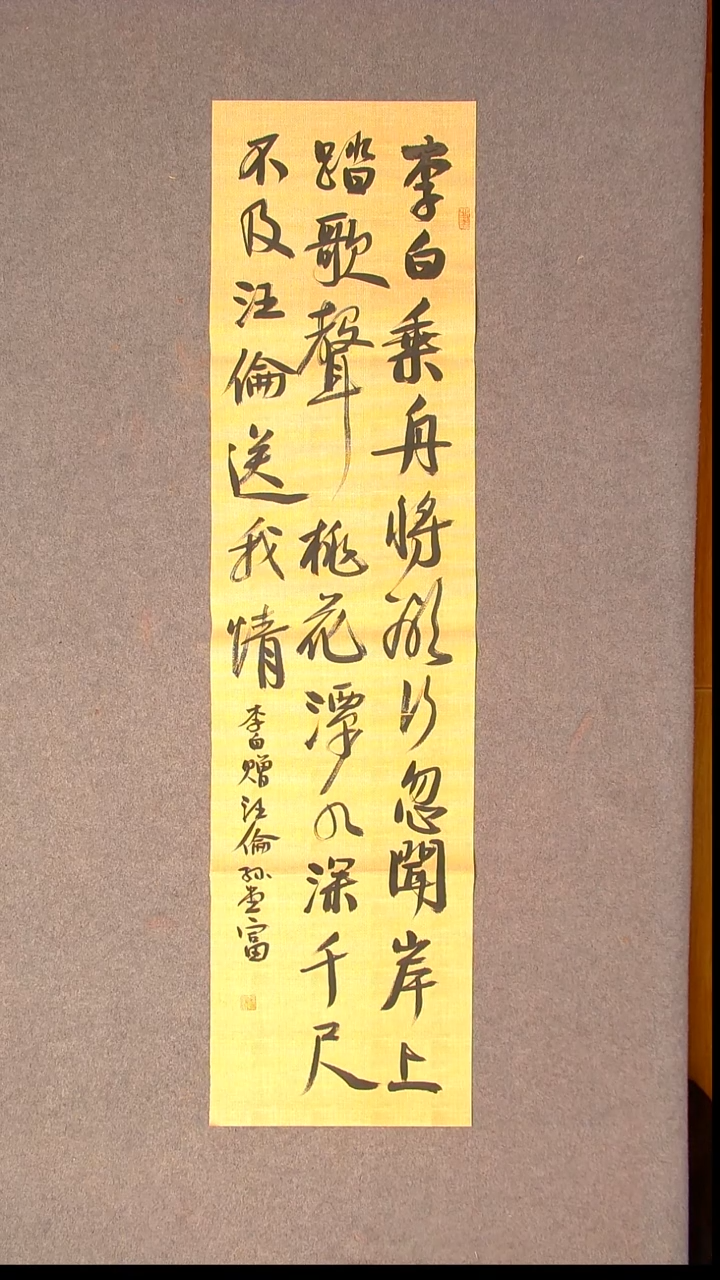 李白乘舟将欲行忽聞岸上
踏歌聲桃花潭水深千尺
不及汪倫送我情
李白赠汪倫孙富